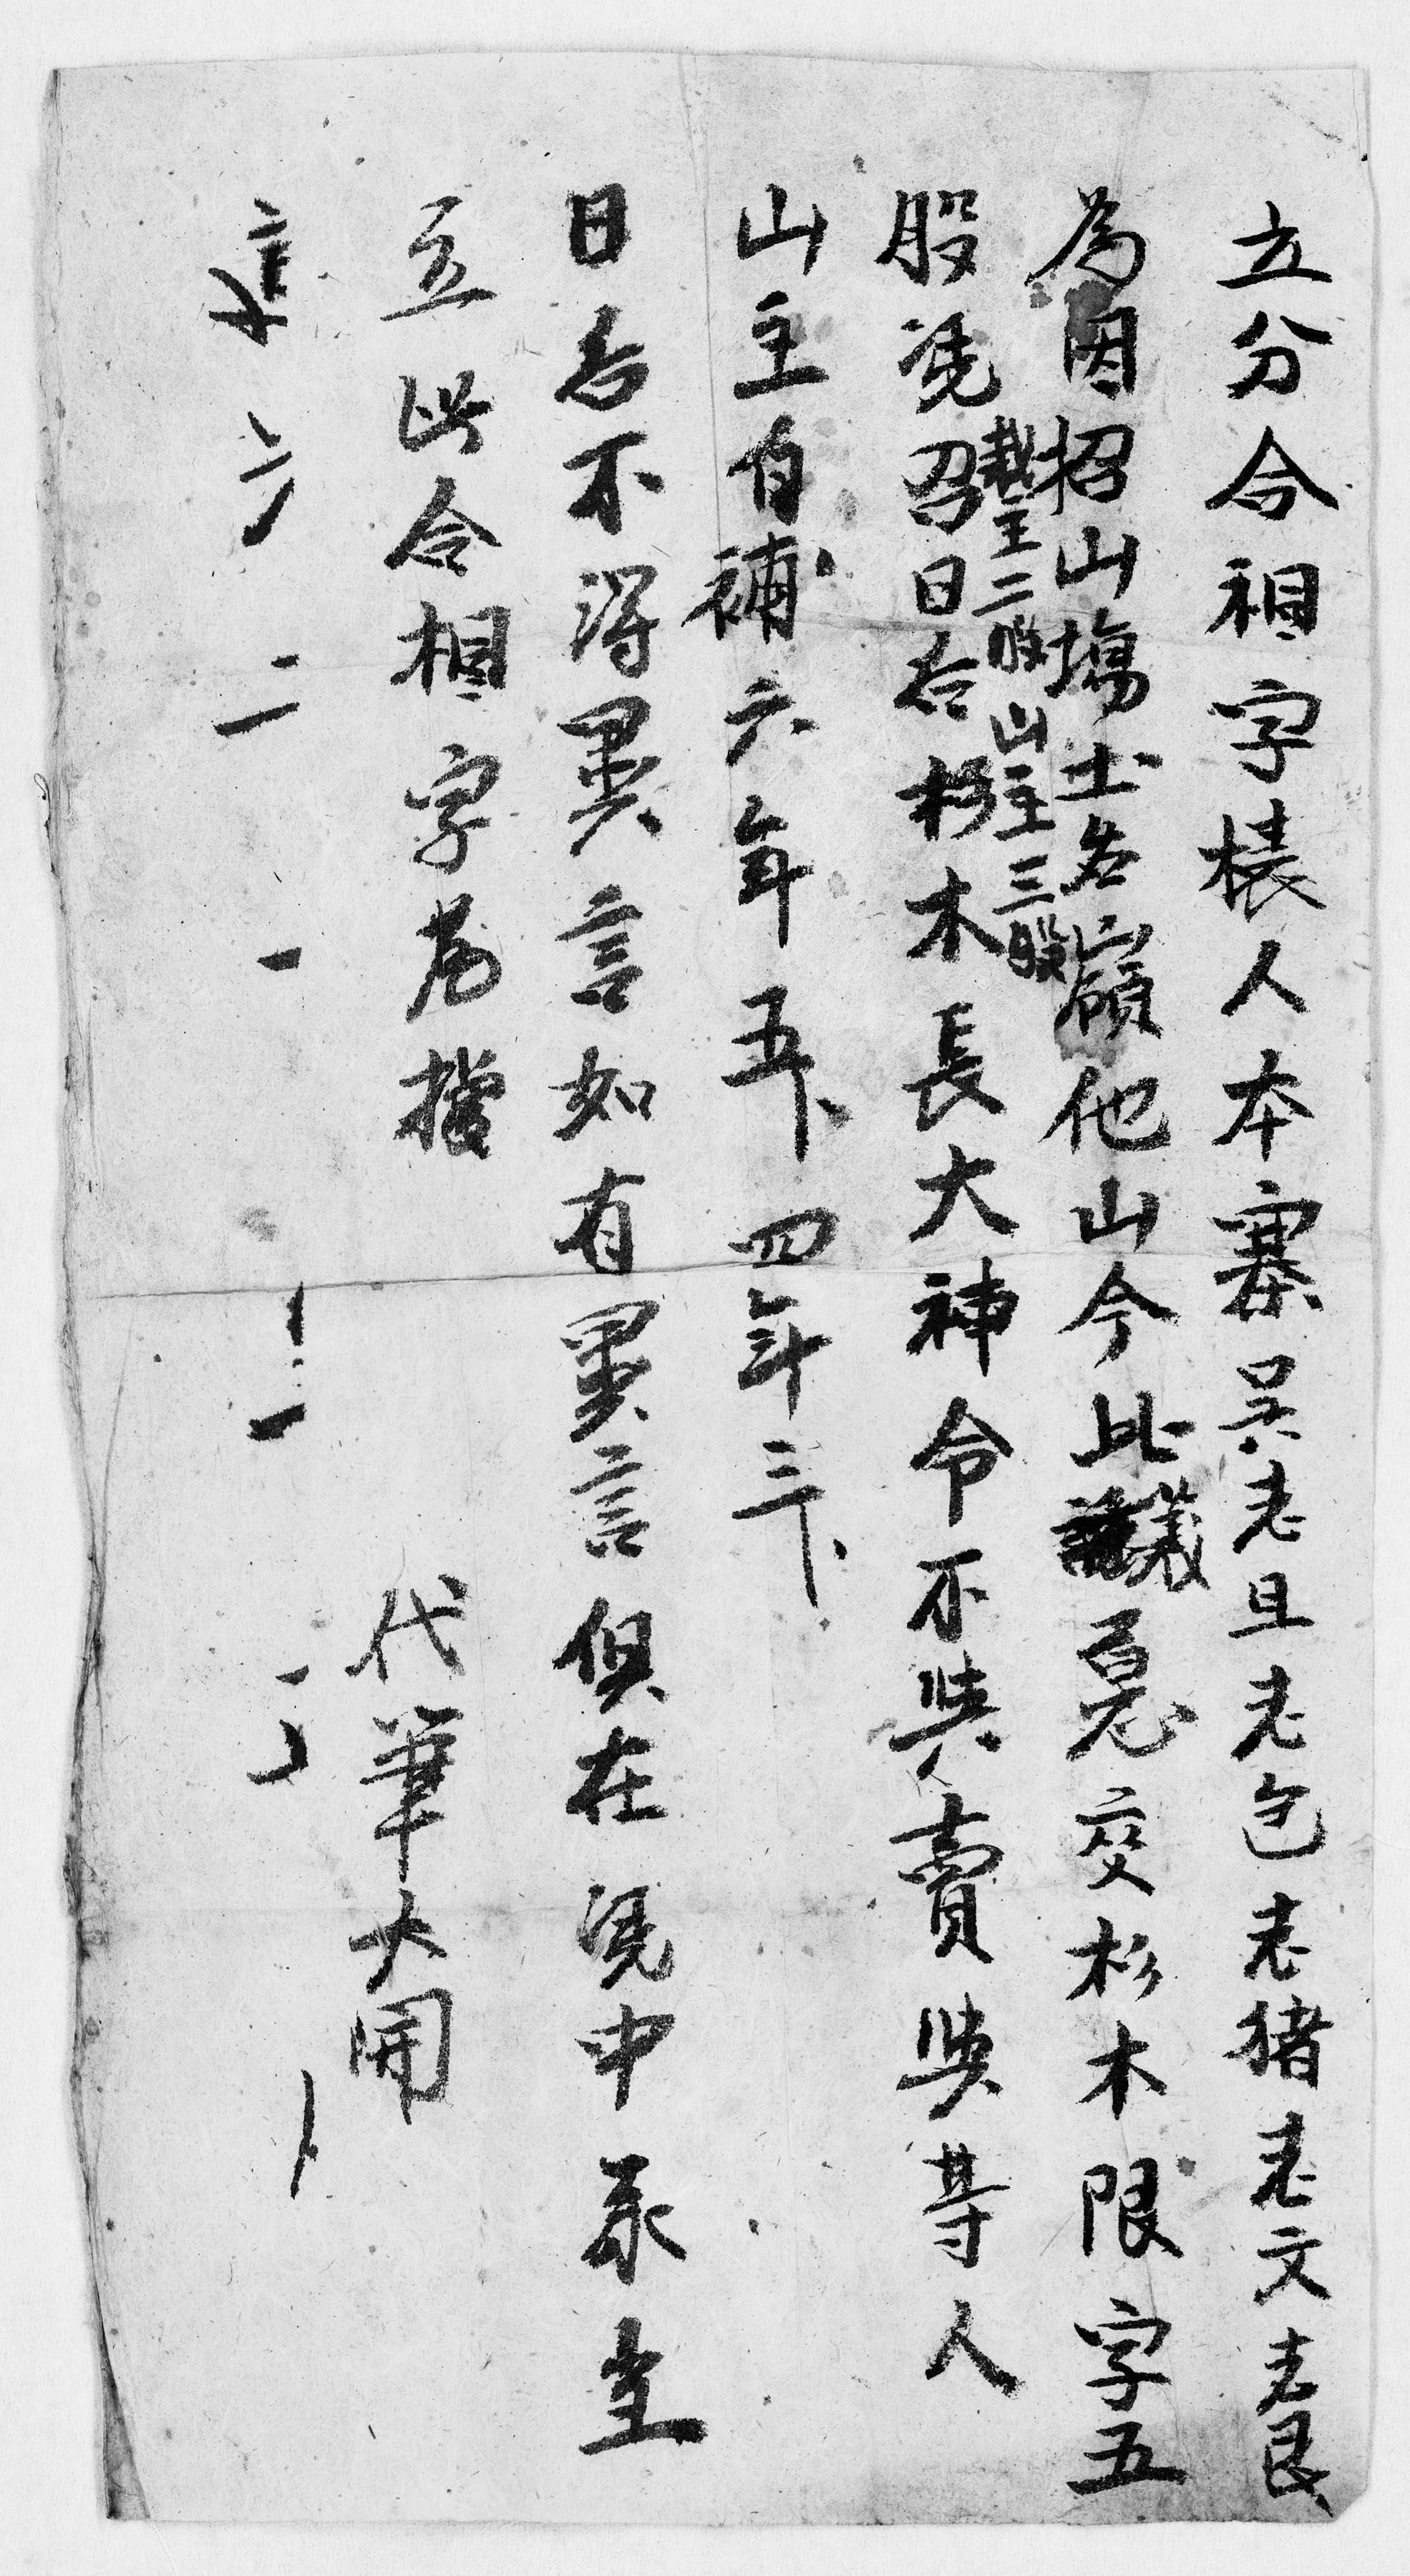 立分合相字様人本寨吳老旦老包老猪老文老艮
為因招山塲土名嶺他山今此議交杉木限字五
股凴召日后杉木長大神令不與賣與等人
栽主二股山主三股
山主自補六年五下四年三下
日后不淂異言如有異言俱在凴中承
立此合相字為攩
代筆大開